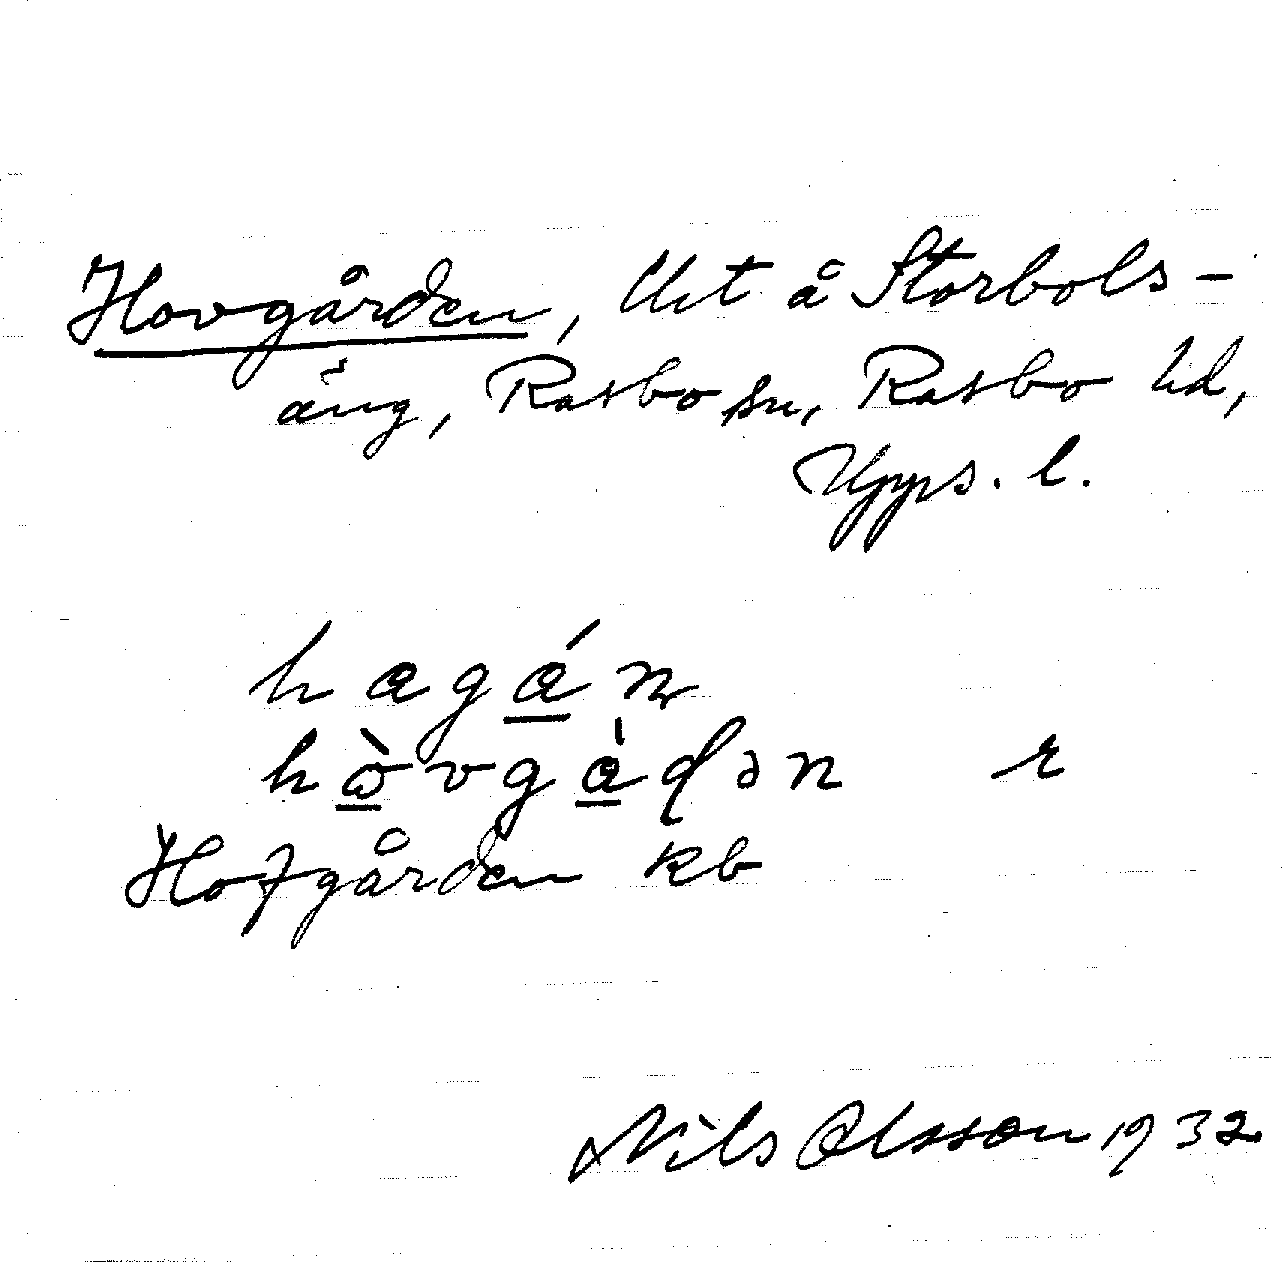 Hovgården, lht å Storbols-
äng, Rasbo sn, Rasbo hd,
Upps. l.
hagán
hòvgàdən r
Hofgården kb
Nils Olsson 1932